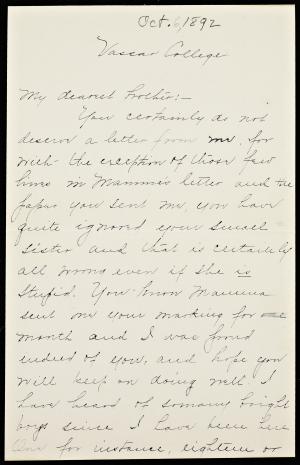 Oct. 6, 1892
Vassar College
My dearest brother:-
You certainly do not
deserve a letter from me, for
with the exception of those few
lines in Mamma's letter and the
paper you sent me, you have
quite ignored your small
sister and that is certainly
all wrong even if she is
stupid. You know Mamma
sent me your marking for one
month and I was proud
indeed of you, and hope you
will keep on doing well. I
have heard of so many bright
boys since I have been here
One for instance, eighteen or